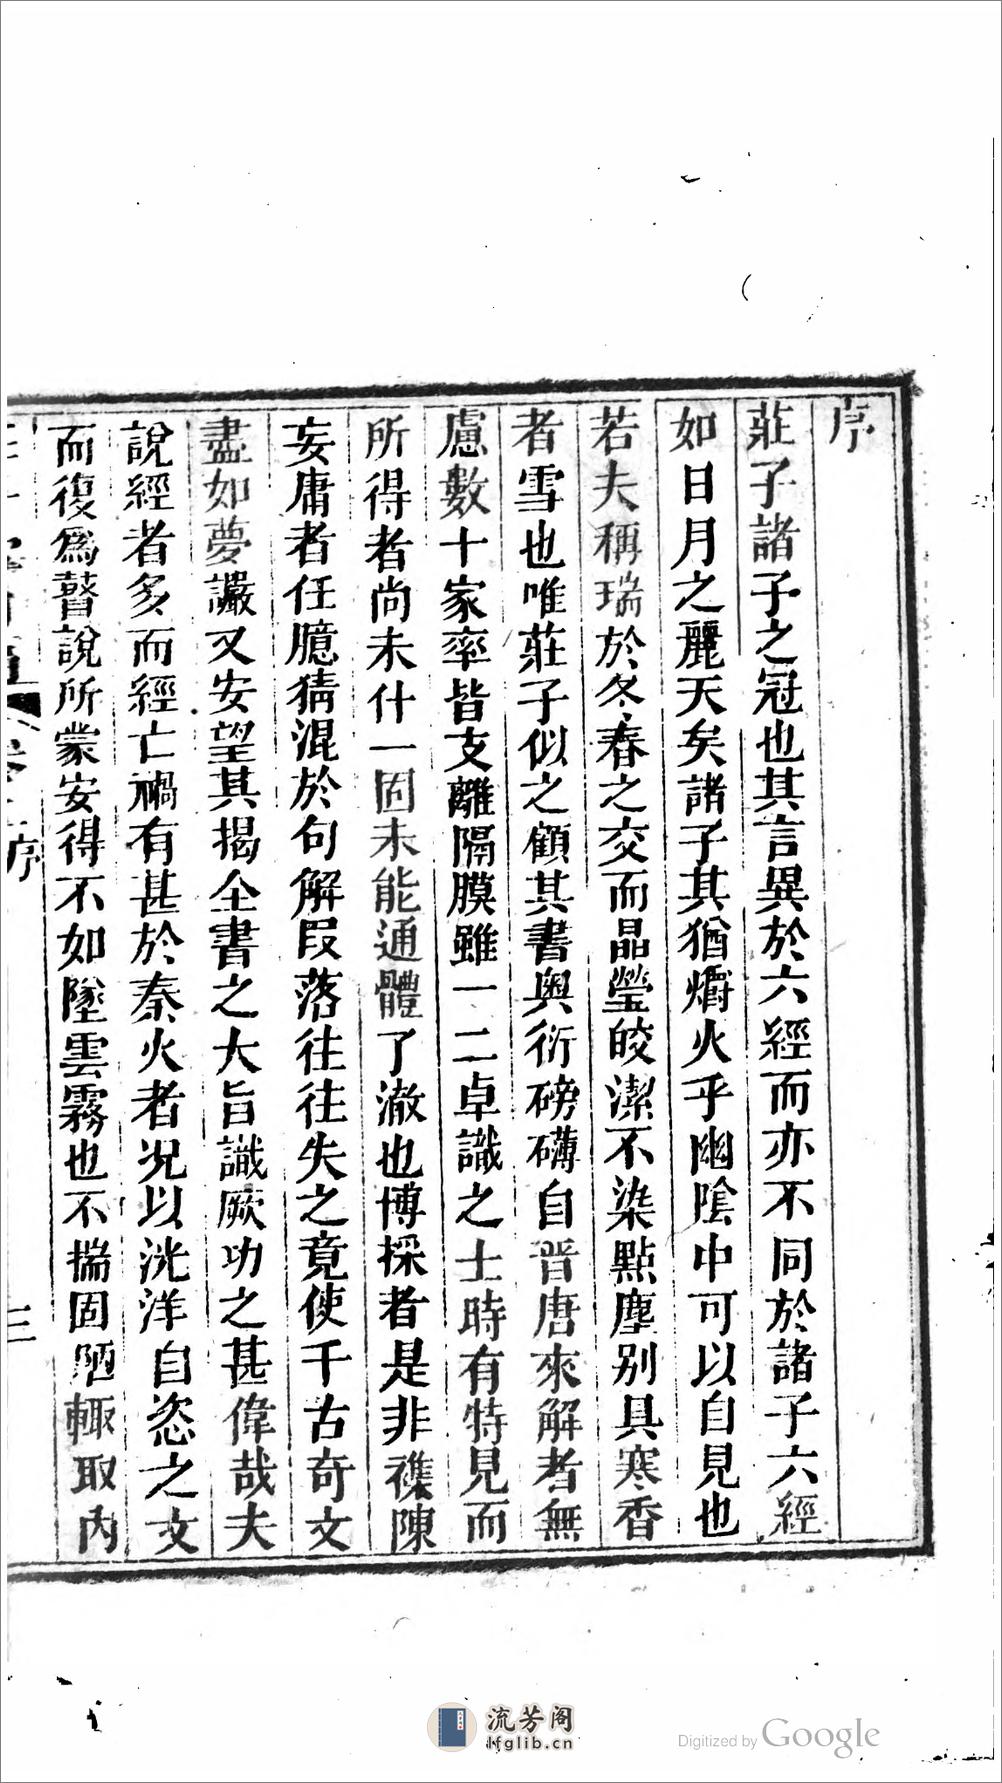 序
莊子諸子之冠也其言異於六經而亦不同於諸子六經
如日月之麗天矣諸子其猶爝火乎幽陰中可以自見也
若夫稱瑞於冬春之交而晶瑩皎潔不染點塵别具寒香
者雪也唯莊子似之顧其書奥衍磅礴自晋唐來解者無
慮數十家率皆支離隔膜雖一二卓識之士時有特見而
所得者尚未什一固未能通體了澈也博採者是非襍陳
妄庸者任臆猜混於句解段落往往失之竟使千古奇文
盡如夢讝又安望其揭全書之大旨識厥功之甚偉哉夫
說經者多而經亡禍有甚於秦火者况以洸洋自恣之文
而復爲瞽說所蒙安得不如墜雲霧也不揣固陋輙取内
序
三
流芳阁
lfglib.cn
Digitized by Google